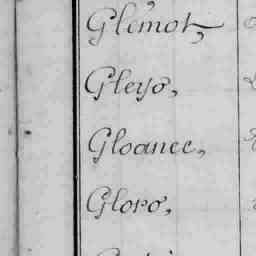 Glemot,
Gleyo,
Gloanec,
Gloro,